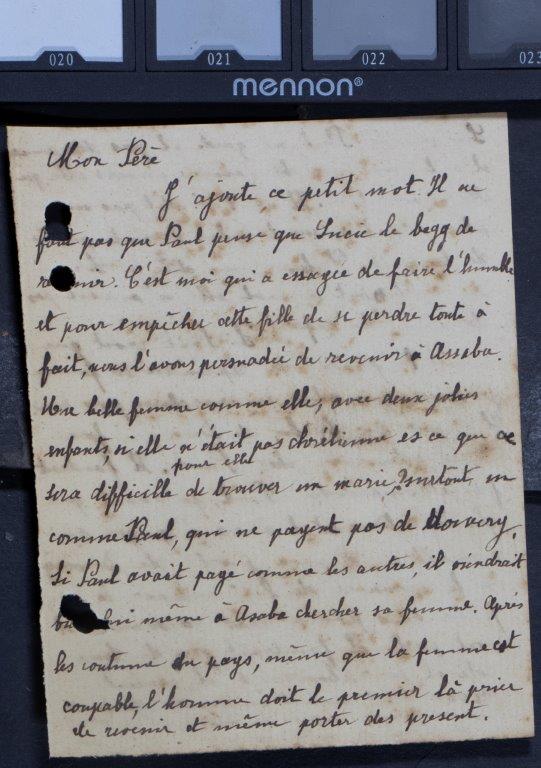 020 021 022 023
mennon®
Mon Père
J'ajoute ce petit mot Il ne
faut pas que Paul pense que Lucie le begg de
revenir. C'est moi qui a essayée de faire l'humble
et pour empêcher cette fille de se perdre toute à
fait, nous l'avons persuadée de revenir à Assaba.
Une belle femme comme elle, avec deux jolies
enfants, si elle n'était pas chrétienne es ce que ce
pour elle
sera difficille de trouver un marie, surtout un
comme Paul, qui ne payent pas de dowery.
Si Paul avait payé comme les autres, il viendrait
lui même à Asaba chercher sa femme. Après
les coutume du pays, même que la femme est
coupable, l'homme doit le premier là prier
de revenir et même porter des present.